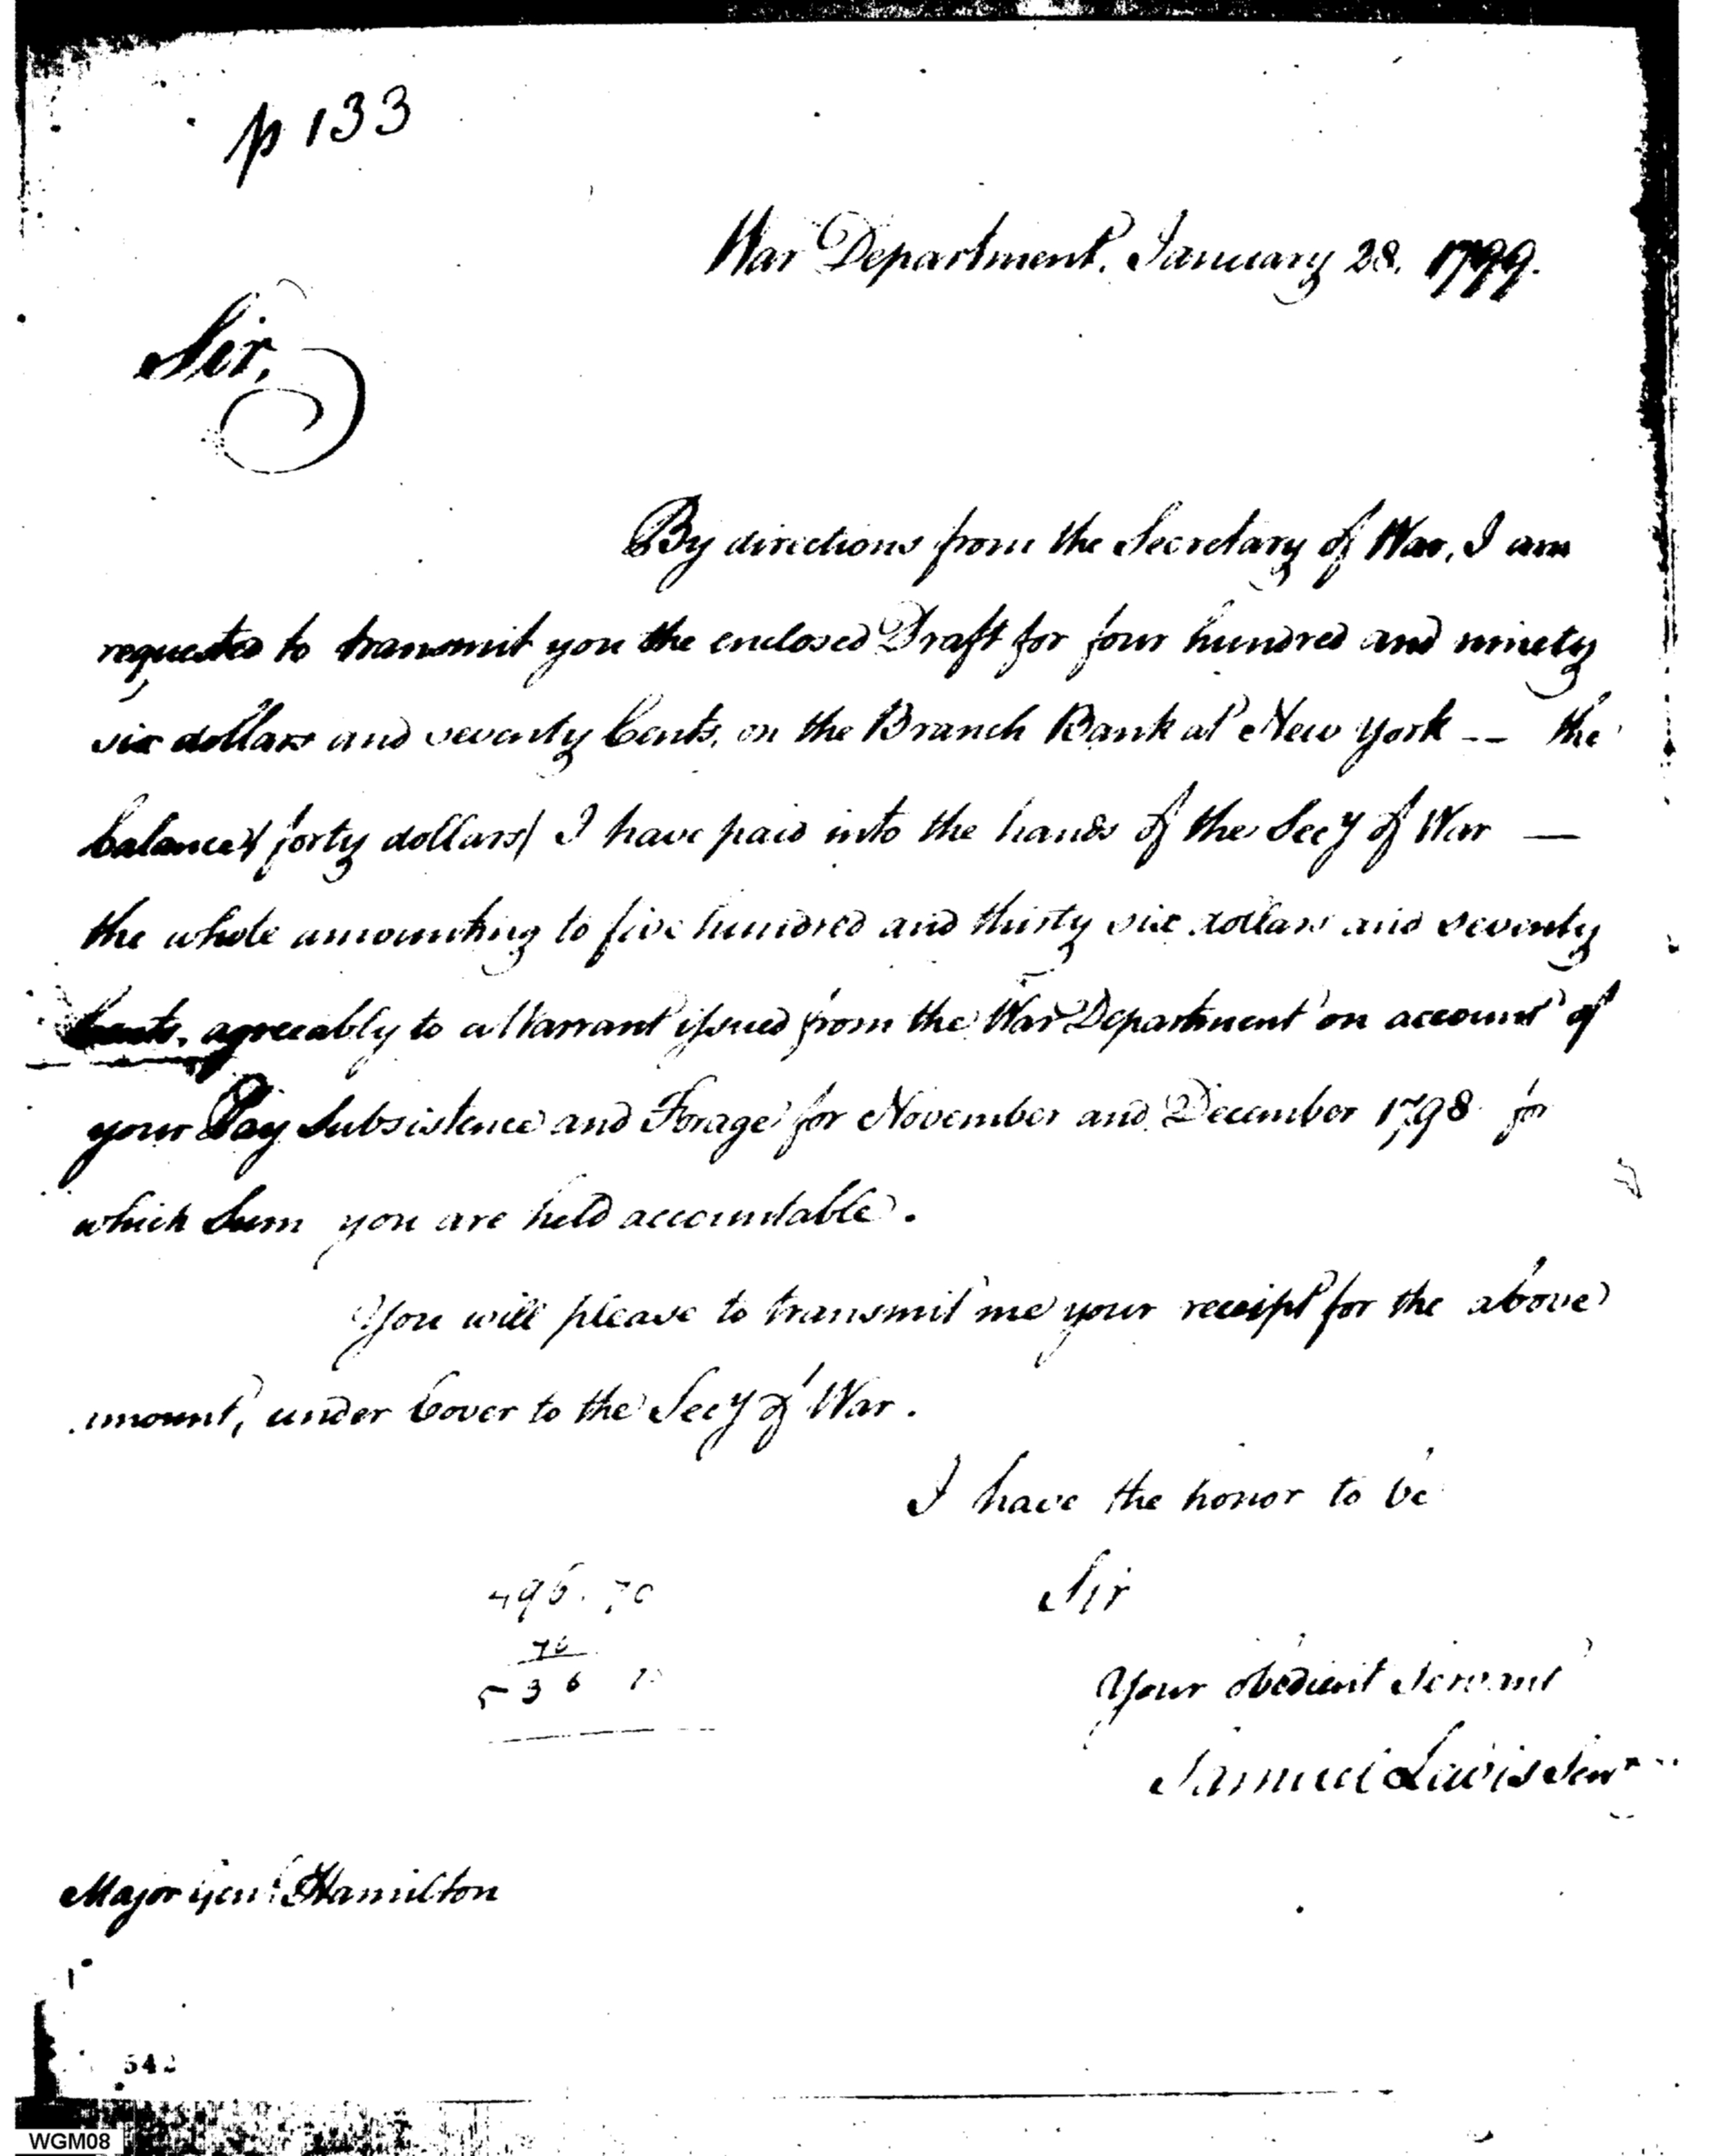 p 133
War Department, January 28, 1799.
Sir,
By directions from the Secretary of War, I am
requested to transmit you the enclosed Draft for four hundred and ninety
six dollars and seventy Cents, on the Branch Bank at New York -- the
balance (forty dollars) I have paid into the hands of the Secy of War —
the whole amounting to five hundred and thirty six dollars and seventy
Cents, agreeably to a Warrant issued from the War Department on account of
your Pay Subsistence and Forage for November and December 1798 for
which Sum you are held accountable.
You will please to transmit me your receipt for the above
amount, under Cover to the Secy of War.
I have the honor to be
Sir
Your obedient Servant
Samuel Lewis Senr
496.70
40
536 70
Major Genl Hamilton
WGM08